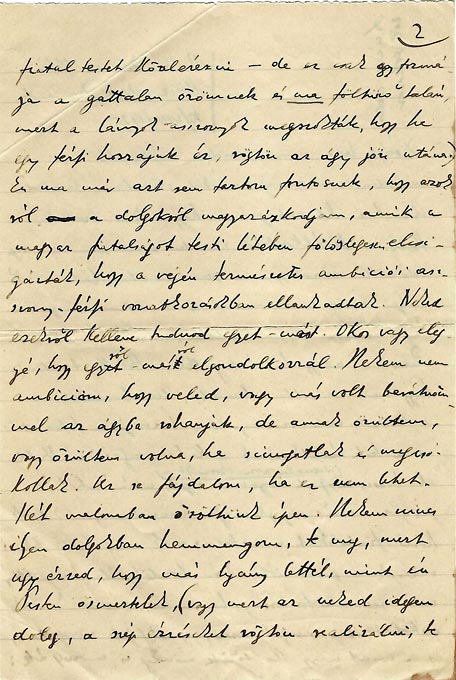 2
fiatal testet közelérezni – de ez csak egy formá-
ja a gáttalan örömnek és ma föltünő talán,
mert a lányok-asszonyok megszokták, hogy ha
egy férfi hozzájuk ér, rögtön az ágy jön utána.
Én ma már azt sem tartom fontosnak, hogy azok-
ról a dolgokról magyarázkodjam, amik a
magyar fiatalságot testi létében fölöslegesen elcsi-
gázták, hogy a végén természetes ambíciói asz-
szony-férfi vonatkozásokban ellankadtak. Neked
ezekről kellene tudnod egyet-mást. Okos vagy elég
gé, hogy egyről-másról elgondolkozzál. Nekem nem
ambicióm, hogy veled, vagy más volt barátnőm-
mel az ágyba rohanjak, de annak örültem,
vagy örültem volna, ha simogatlak és megcsó-
kollak. Az se fájdalom, ha ez nem lehet.
Két malomban őröltünk épen. Nekem nincs
ilyen dolgokban hemmungom, te meg, mert
úgy érzed, hogy más lyány lettél, mint én
Pesten ösmertelek, (vagy mert az neked idegen
dolog, a szép érzéseket rögtön realizálni, te